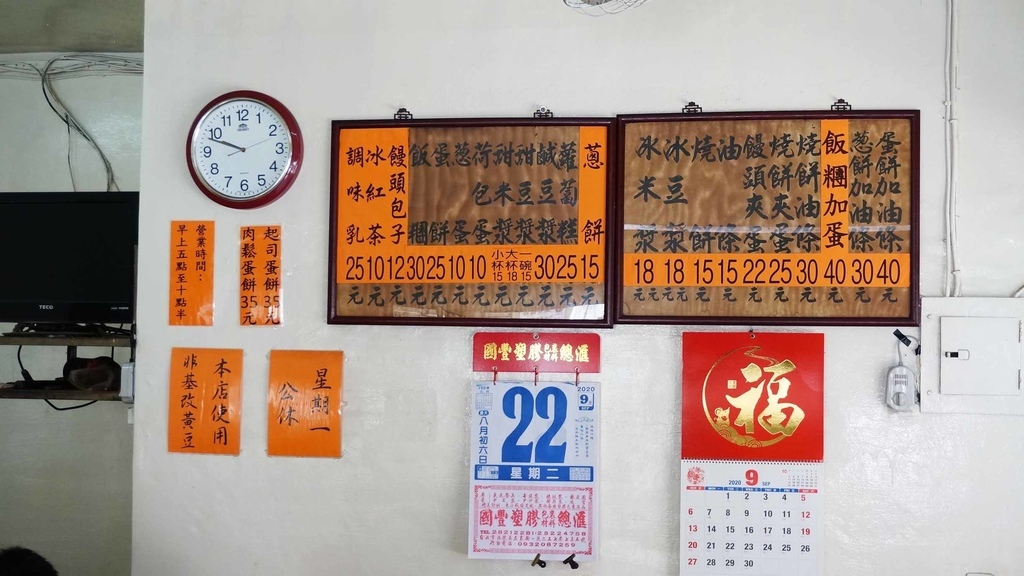 蛋餅加油條 40元
蔥餅加油條 30元
飯糰加蛋 40元
燒餅夾油條 30元
燒餅夾蛋 25元
饅頭夾蛋 22元
油條 15元
燒餅 15元
冰豆漿 18元
冰米漿 18元
蔥餅 15元
蘿蔔糕 25元
鹹豆漿 30元
甜豆漿
甜米漿
小杯15 大杯18 一碗15 元
荷包蛋 10元
蔥蛋 10元
蛋餅 25元
飯糰 30元
饅頭包子 12元
冰紅茶 10元
調味乳 25元
營業時間：
早上五點至十點半
起司蛋餅35元
肉鬆蛋餅35元
本店使用
非基改黃豆
星期一
公休
TECO
12 1 2 3 4 5 6 7 8 9 10 11
國豐塑膠包裝材料總滙
2020
9月
SEP
八月初六日
22
星期二
國豐塑膠包裝材料總滙
福
2020 9 SEP
1 2 3 4 5
6 7 8 9 10 11 12
13 14 15 16 17 18 19
20 21 22 23 24 25 26
27 28 29 30